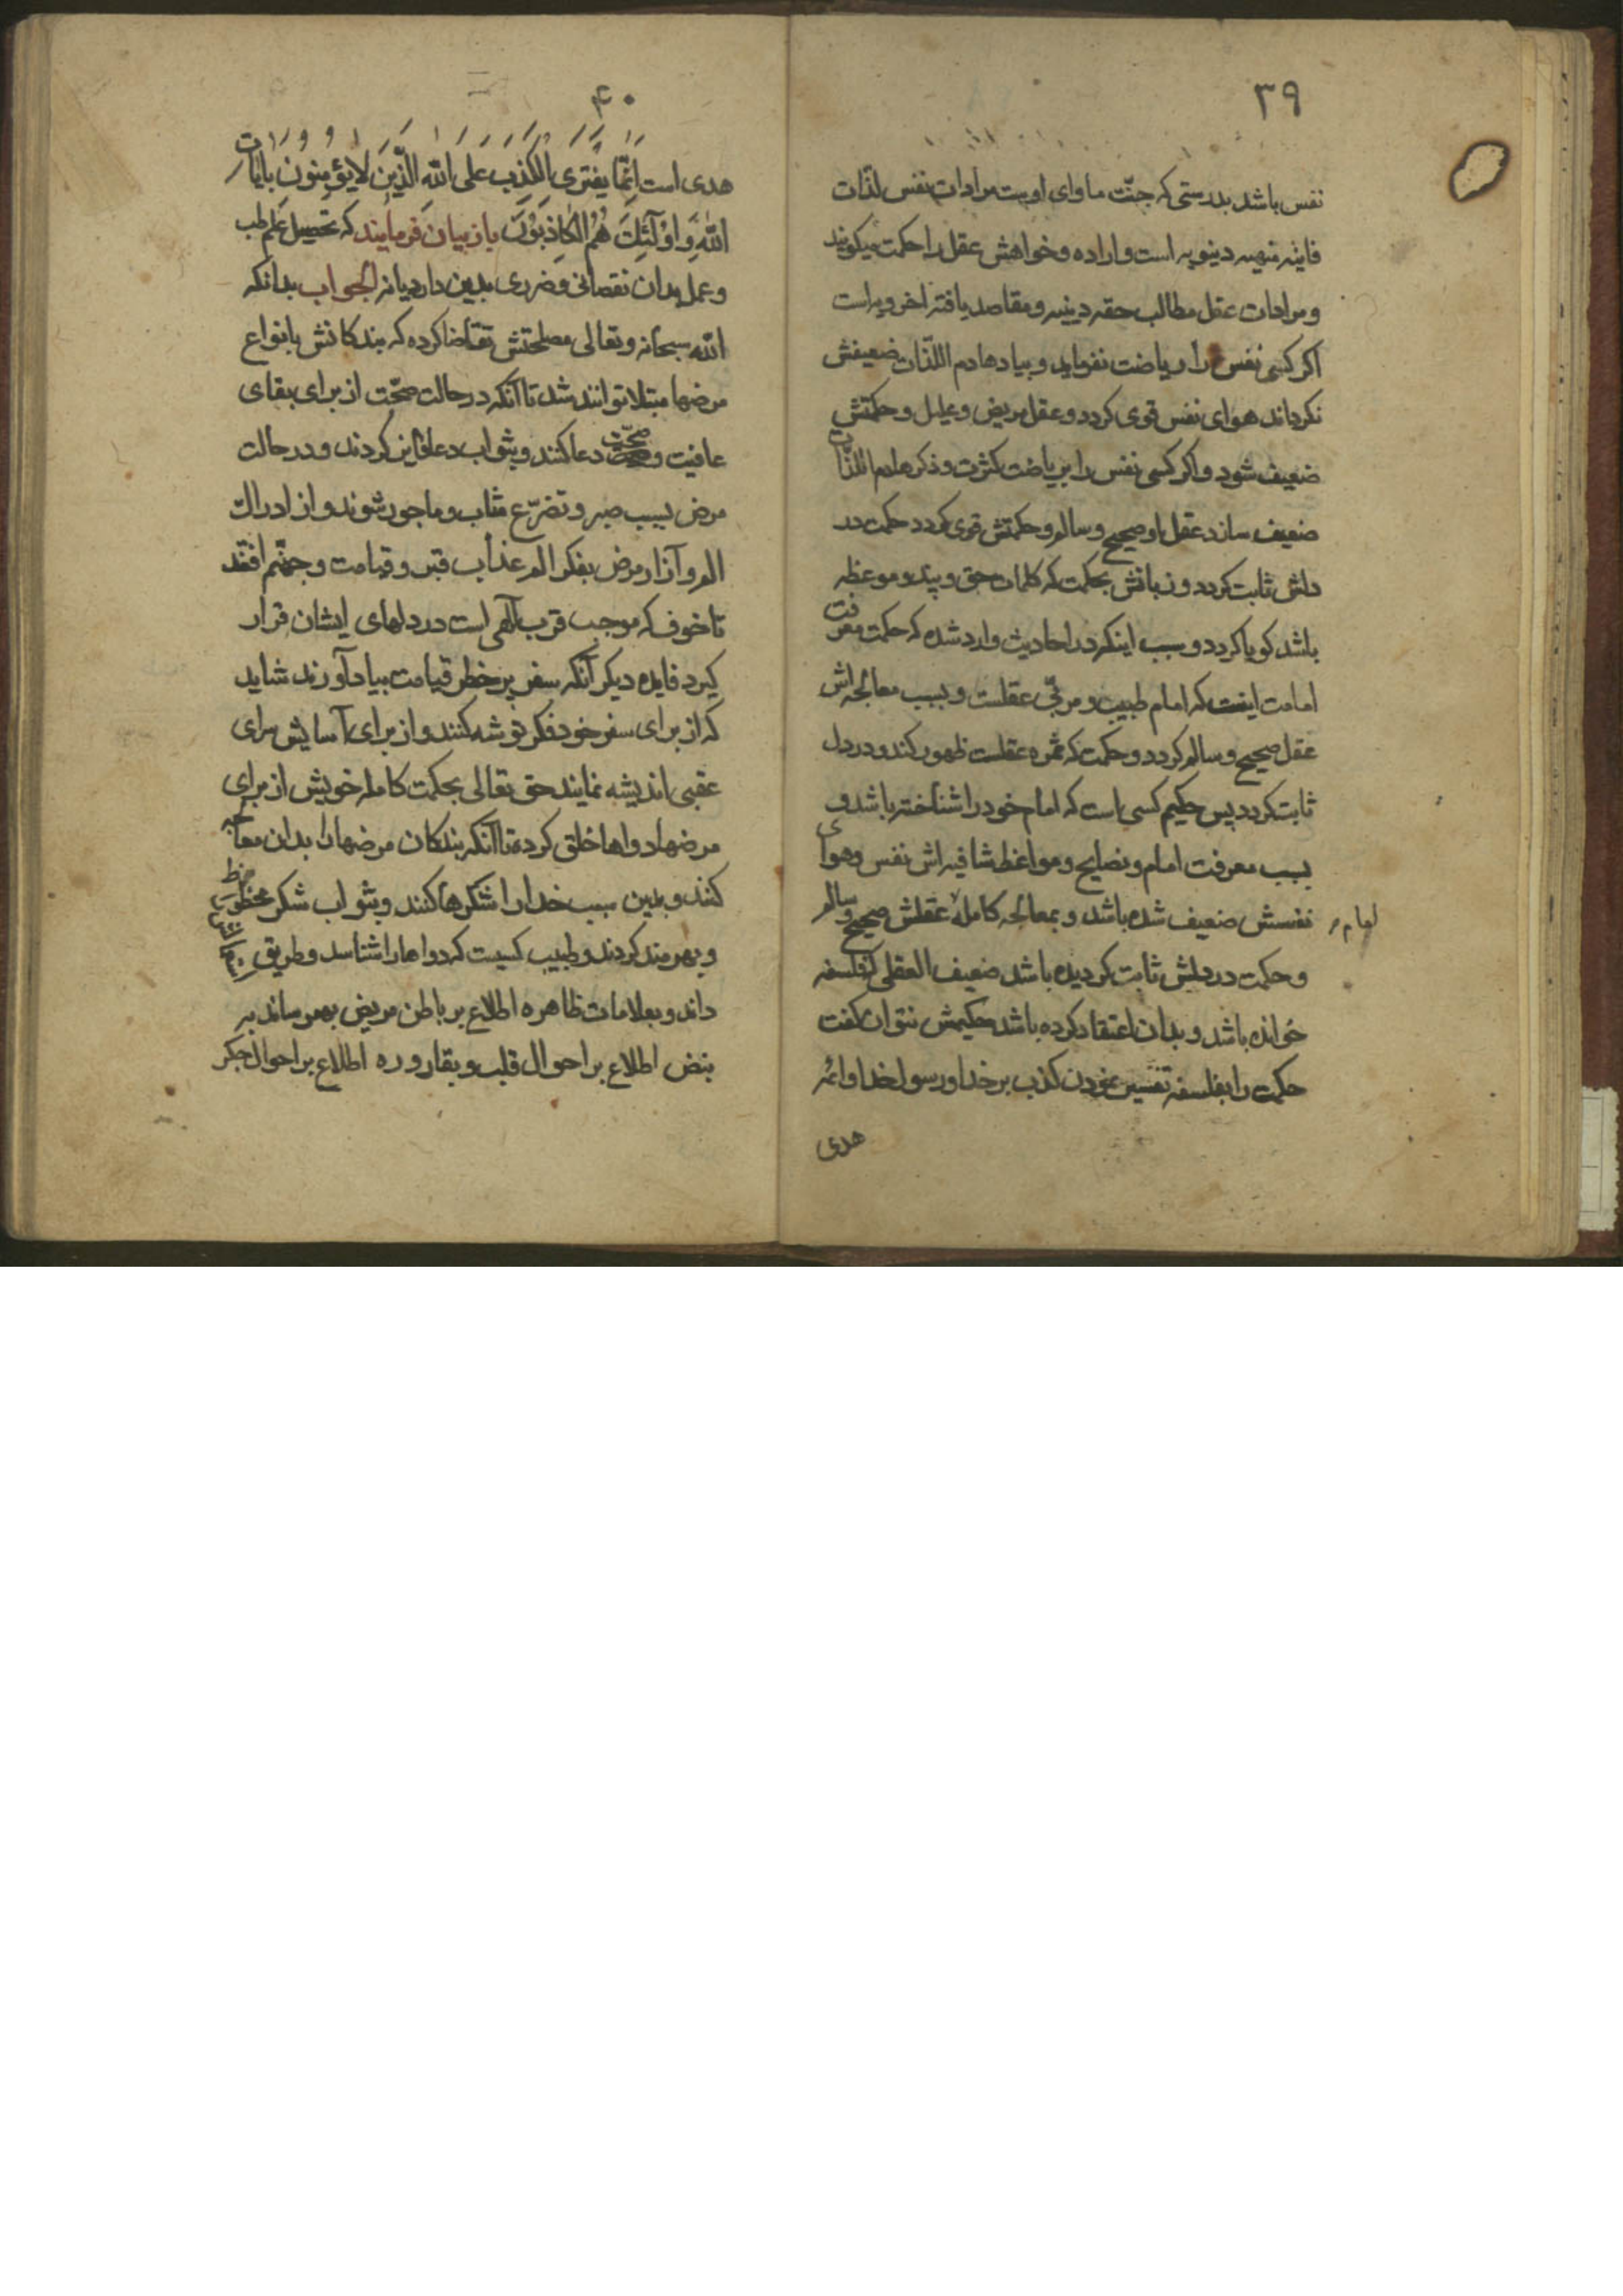 ۳۹
نفس باشد بدرستی که جنّت ماوای اوست مرادات نفس لذّات
فانیه منهیه دنیویه است و اراده و خواهش عقل را حکمت میکویند
و مرادات عقل مطالب حقه دینیه و مقاصد یافته اخرویه است
اکر کسی نفس را ریاضت نفرماید و بیاد هادم اللّذات ضعیفش
نکرداند هوای نفس قوی کردد و عقل مریض و علیل و حکمتش
ضعیف شود و اکر کسی نفس را بریاضت کثرت و ذکر هادم اللذّات
ضعیف سازد عقل او صحیح و سالم و حکمتش قوی کردد حکمت در
دلش ثابت کردد و زبانش بحکمت که کلمات حق و پند و موعظه
باشد کویا کردد و سبب اینکه در احادیث وارد شده که حکمت معرفت
امامت اینست که امام طبیب و مربّی عقلست و بسبب معالجه اش
عقل صحیح و سالم کردد و حکمت که ثمره عقلست ظهور کند و در دل
ثابت کردد پس حکیم کسی است که امام خود را شناخته باشد و
بسبب معرفت امام و نصایح و مواعظ شافیه اش نفس و هوای
نفسش ضعیف شده باشد و بمعالجه کاملهٔ امام عقلش صحیح و سالم
و حکمت در دلش ثابت کردیده باشد ضعیف العقلی که فلسفه
خوانده باشد و بدان اعتقاد کرده باشد حکیمش نتوان کفت
حکمت را بفلسفه تفسیر نمودن کذب بر خدا و رسول خدا و ائمه
هدی
۴۰
هدی است اِنَّمَا یَفْتَرِی الْکَذِبَ عَلَی اللّهِ الَّذِینَ لَا یُؤْمِنُونَ بِآیَاتِ
اللّهِ وَ اُولَئِکَ هُمُ الْکَاذِبُونَ باز بیان فرمایند که تحصیل علم طب
و عمل بدان نقصانی و ضرری بدین دارد یا نه الجواب بدانکه
اللّه سبحانه و تعالی مصلحتش تقاضا کرده که بندکانش بانواع
مرضها مبتلا توانند شد تا آنکه در حالت صحّت از برای بقای
عافیت و صحّت دعا کنند و بثواب دعا فایز کردند و در حالت
مرض بسبب صبر و تضرّع مثاب و ماجور شوند و از ادراک
الم و آزار مرض بفکر الم عذاب قبر و قیامت و جهنّم افتند
تا خوف که موجب قرب آلهی است در دلهای ایشان قرار
کیرد فایده دیکر آنکه سفر پر خطر قیامت بیاد آورند شاید
که از برای سفر خود فکر توشه کنند و از برای آسایش سرای
عقبی اندیشه نمایند حق تعالی بحکمت کامله خویش از برای
مرضها دواها خلق کرده تا آنکه بندکان مرضها را بدان معالجه
کنند و بدین سبب خدا را شکرها کنند و بثواب شکر محظوظ
و بهره مند کردند و طبیب کسیست که دواها را شناسد و طریق
داند و بعلامات ظاهره اطلاع بر باطن مریض بهم رساند به
نبض اطلاع بر احوال قلب و بقاروره اطلاع بر احوال جکر